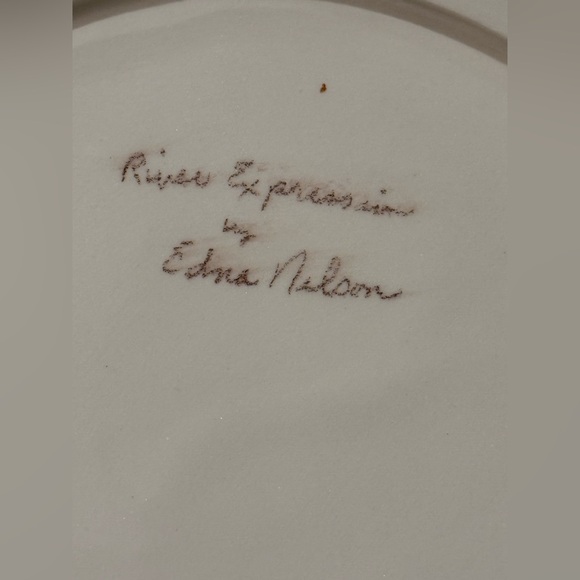 River Expression
by
Edna Nelson